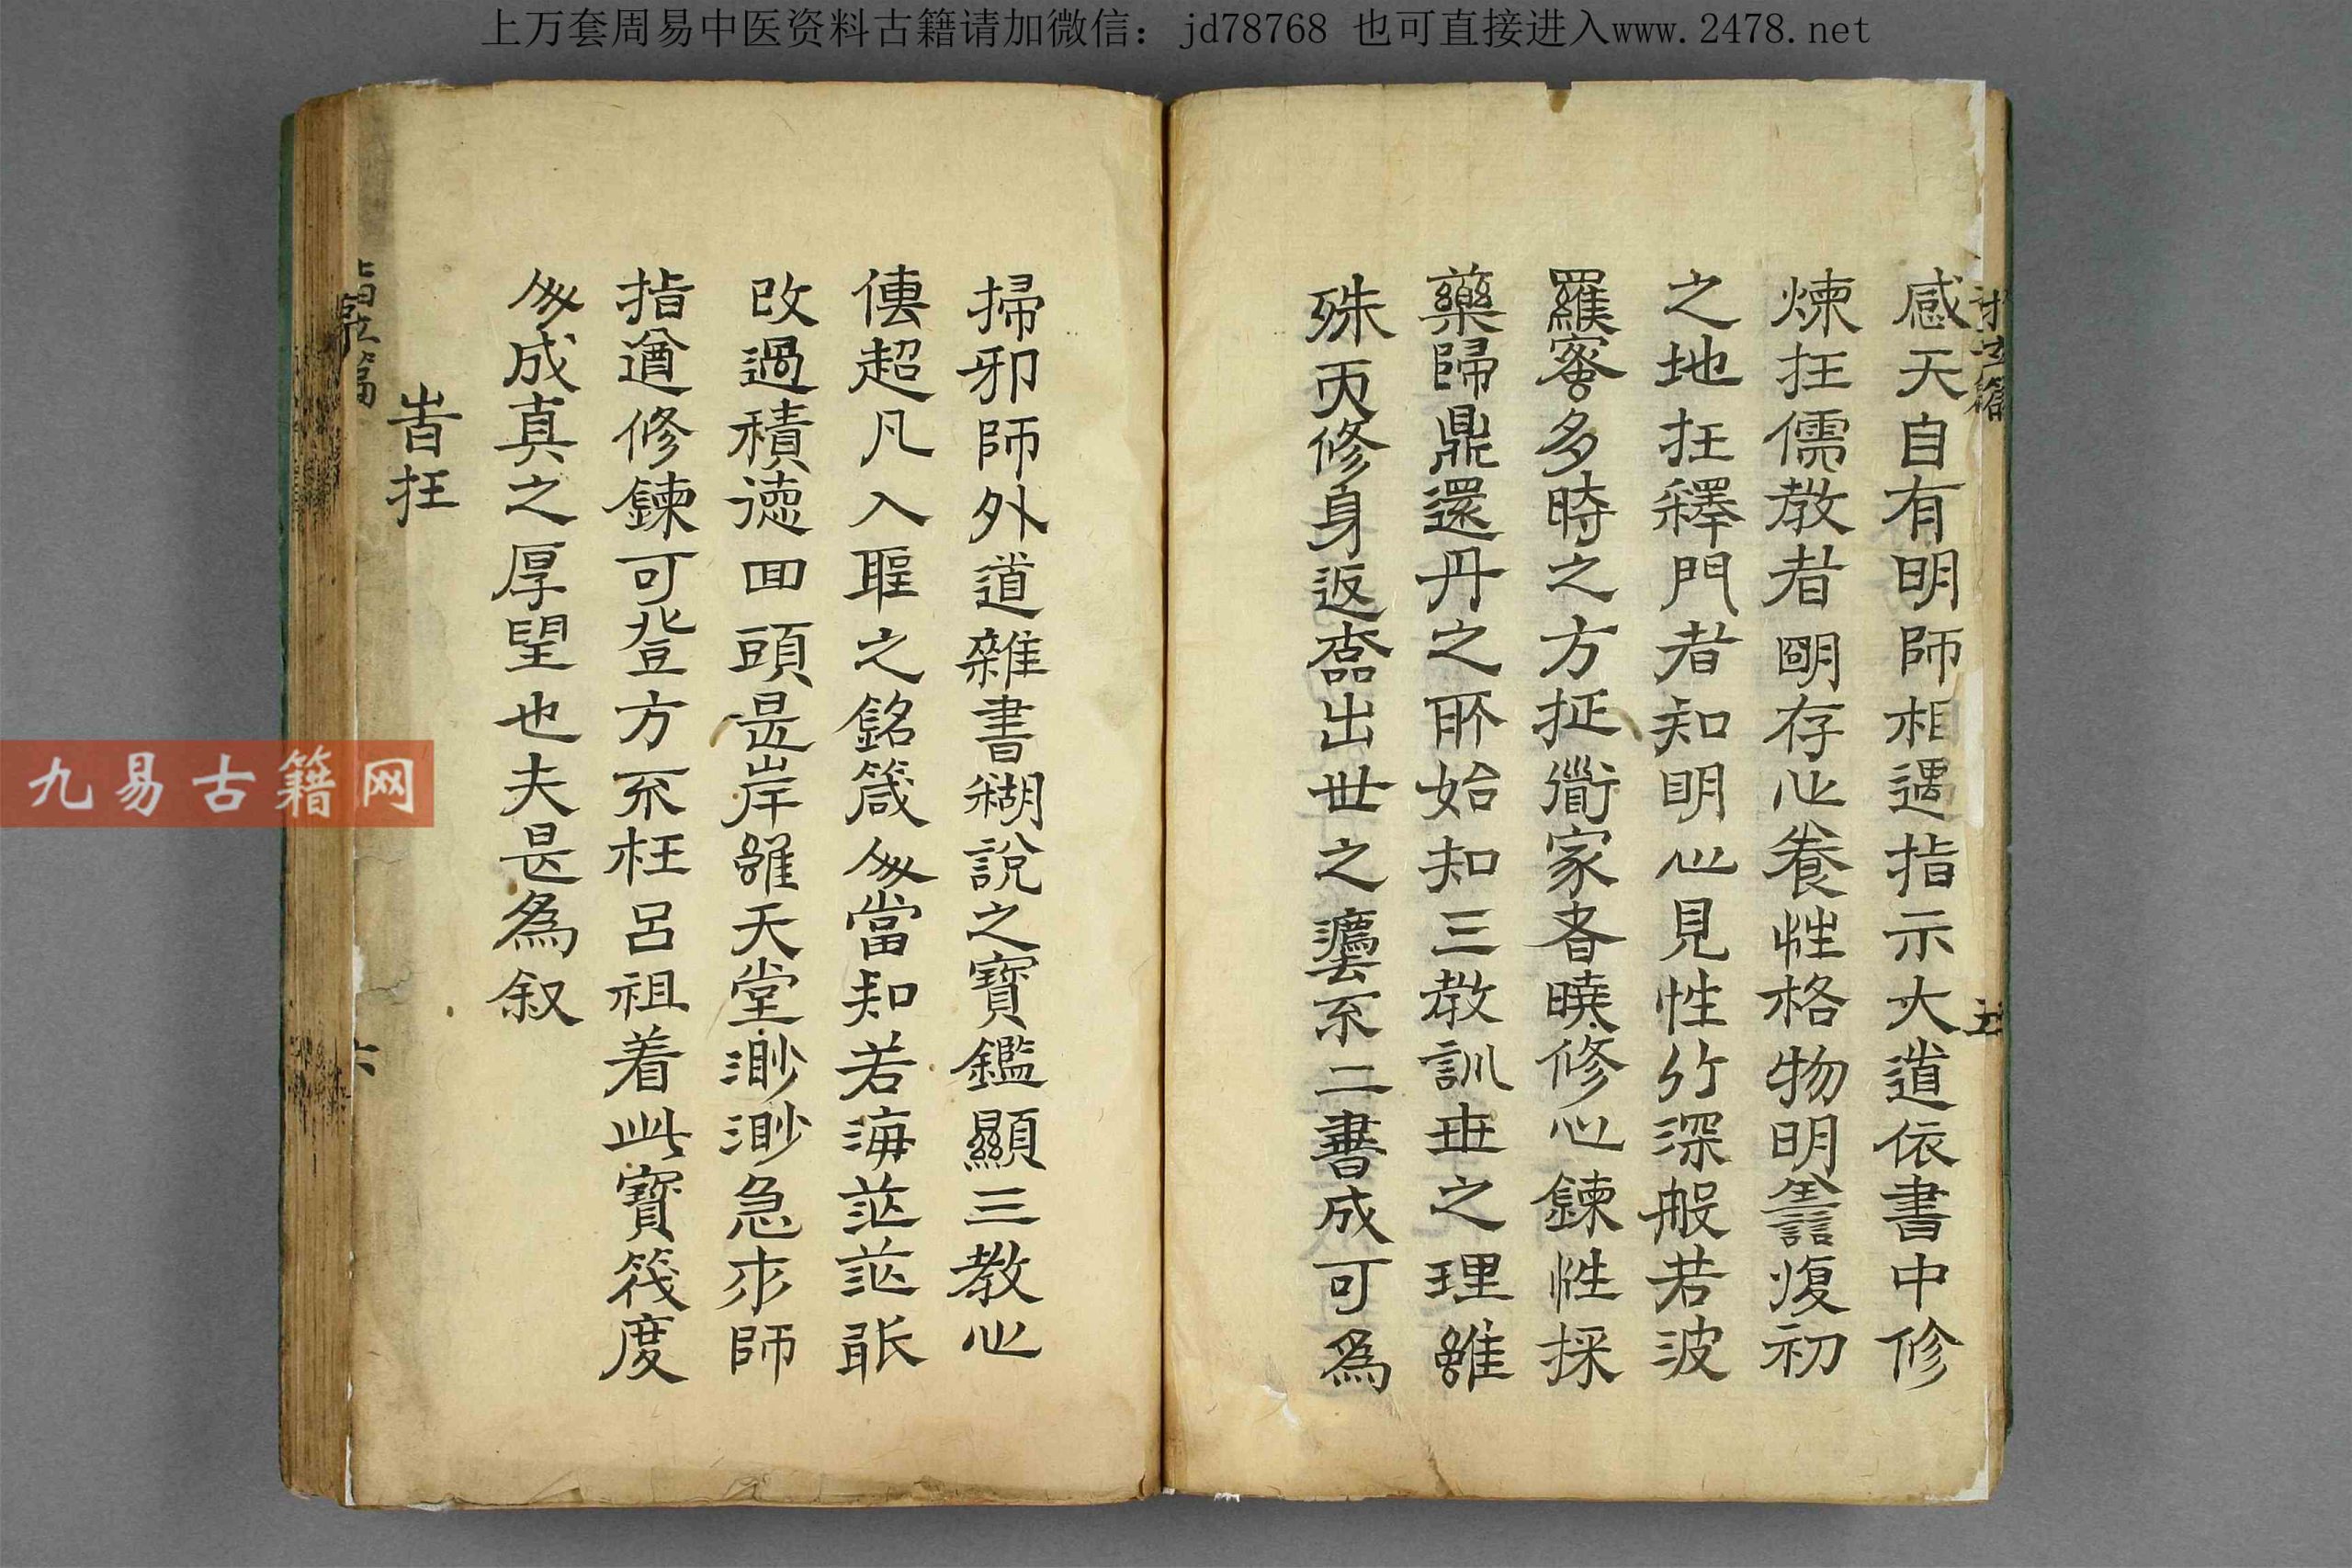 上万套周易中医资料古籍请加微信：jd78768 也可直接进入www.2478.net
感天自有明師相遇指示大道依書中修
煉在儒教者明存心養性格物明善復初
之地在釋門者知明心見性行深般若波
羅蜜多時之方在道家者曉修心鍊性採
藥歸鼎還丹之所始知三教訓世之理雖
殊而修身返本出世之法不二書成可為
五
掃邪師外道雜書糊說之寶鑑顯三教心
傳超凡入聖之銘箴人當知若海茫茫
改過積德回頭是岸雖天堂渺渺急求師
指道修鍊可登方不枉呂祖着此寶筏度
人成真之厚望也夫是為叙
旹在
六
九易古籍网